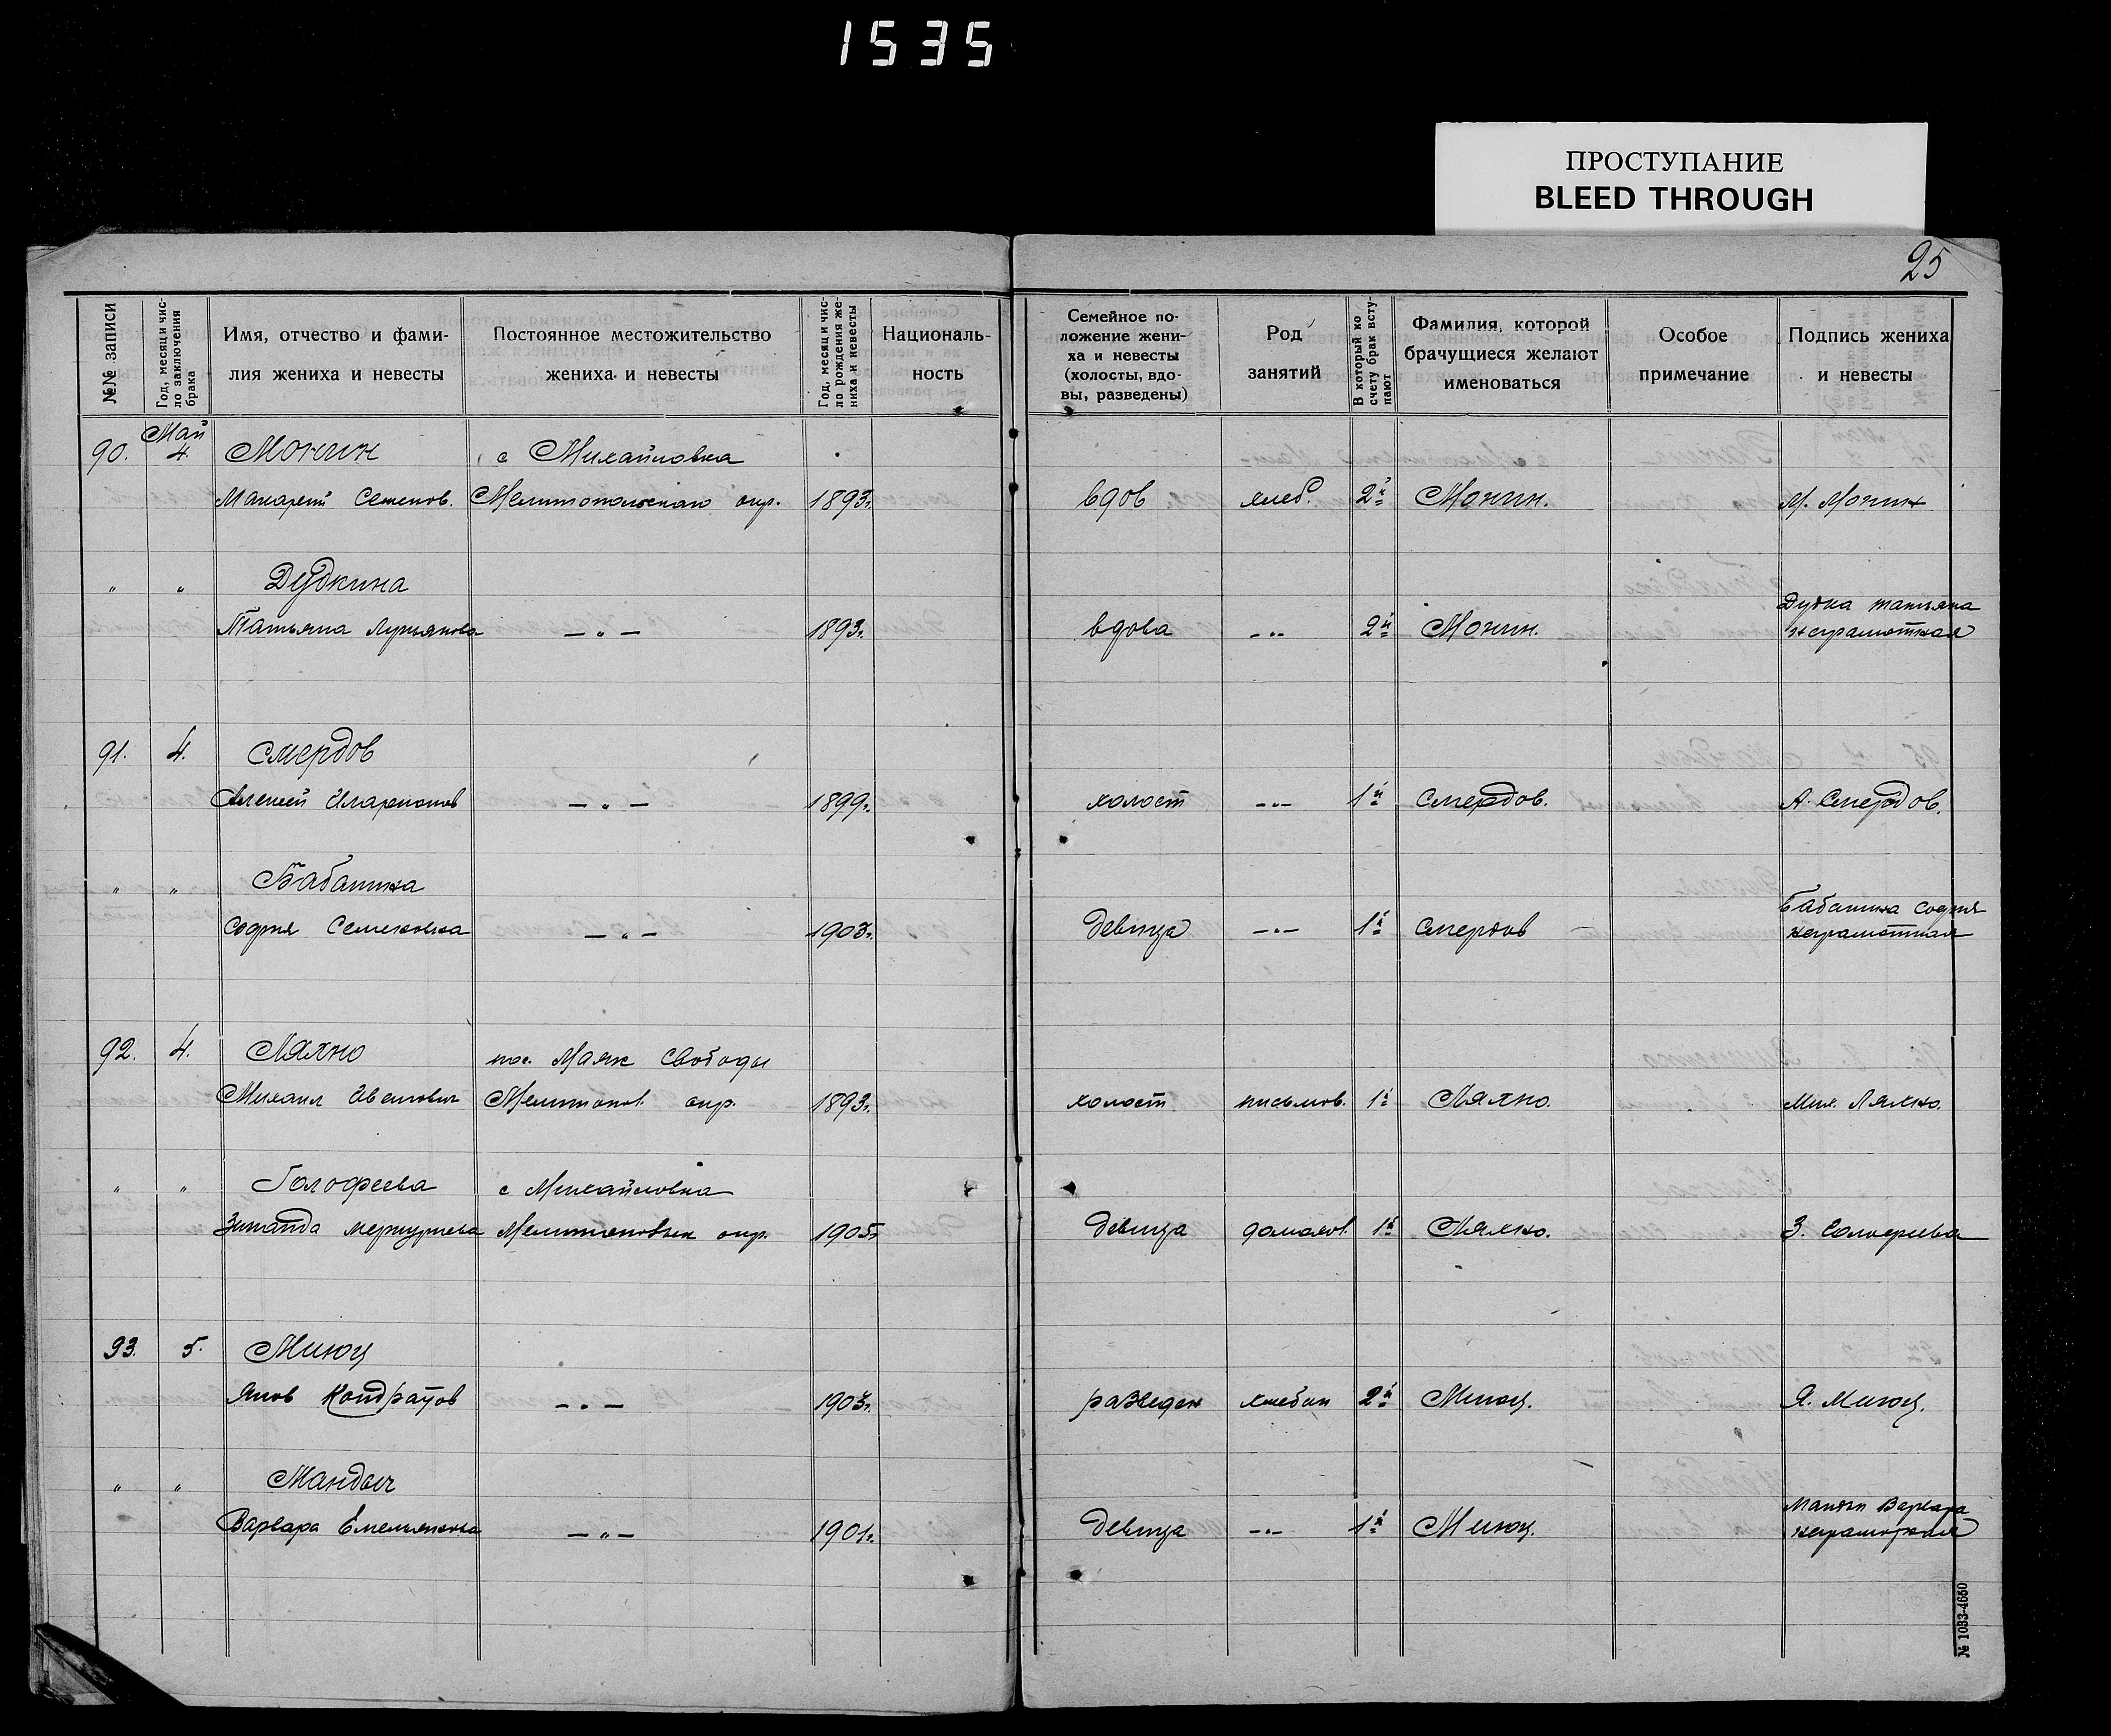 1535
ПРОСТУПАНИЕ
BLEED THROUGH
25
№№ записи
Год, месяц и чис-
ло заключения
брака
Имя, отчество и фами-
лия жениха и невесты
Постоянное местожительство
жениха и невесты
Год, месяц и чис-
ло рождения же-
ниха и невесты
Националь-
ность
Семейное по-
ложение жени-
ха и невесты
(холосты, вдо-
вы, разведены)
Род
занятий
В который ко
счету брак всту-
пают
Фамилия, которой
брачущиеся желают
именоваться
Особое
примечание
Подпись жениха
и невесты
Май
90. 4. Монин с Михайловка
Макарий Семенов. Мелитопольского окр. 1893г. вдов хлеб. 2й Монин. М. Монин
" " Дудкина
Татьяна Лукьянова —"— 1893г. вдова —"— 2й Монин. Дудка татьяна
неграмотная
91. 4. Смердов
Алексей Иларионов —"— 1899г. холост —"— 1й Смердов. А. Смердов.
" " Бабанина
София Семеновна —"— 1903г. девица —"— 1й Смердов Бабанина София
неграмотная
92. 4. Лялко пос. Маяк Свободы
Михаил Иванович Мелитопол. окр. 1893г. холост письмов. 1й Лялко. Мих. Лялко.
" " Голофеева с Михайловка
Зинаида Меркурьева окр. 1905г. девица домохоз. 1й Лялко. З. Голофеева
93. 5. Миюц
Яков Кондратов —"— 1903г. разведен хлебоп 2й Миюц. Я. Миюц.
" " Мандыч
Варвара Емельяновна —"— 1901г. девица —"— 1й Миюц. Варвара
неграмотная
№ 1033-4650